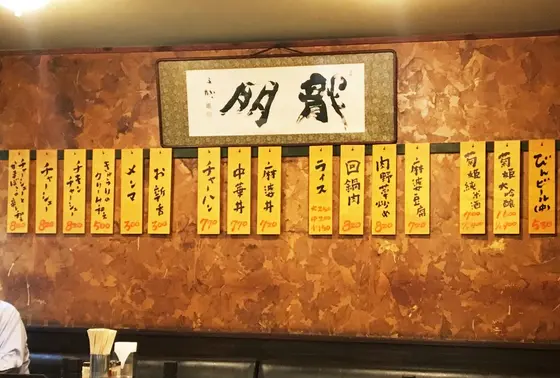 龍朋
びんビール(中)
550
菊姫大吟醸
菊姫純米酒
麻婆豆腐
700
肉野菜炒め
800
回鍋肉
800
ライス
麻婆丼
770
中華丼
770
チャーハン
770
お新香
300
メンマ
300
500
チキンチャーシュー
800
チャーシュー
800
800